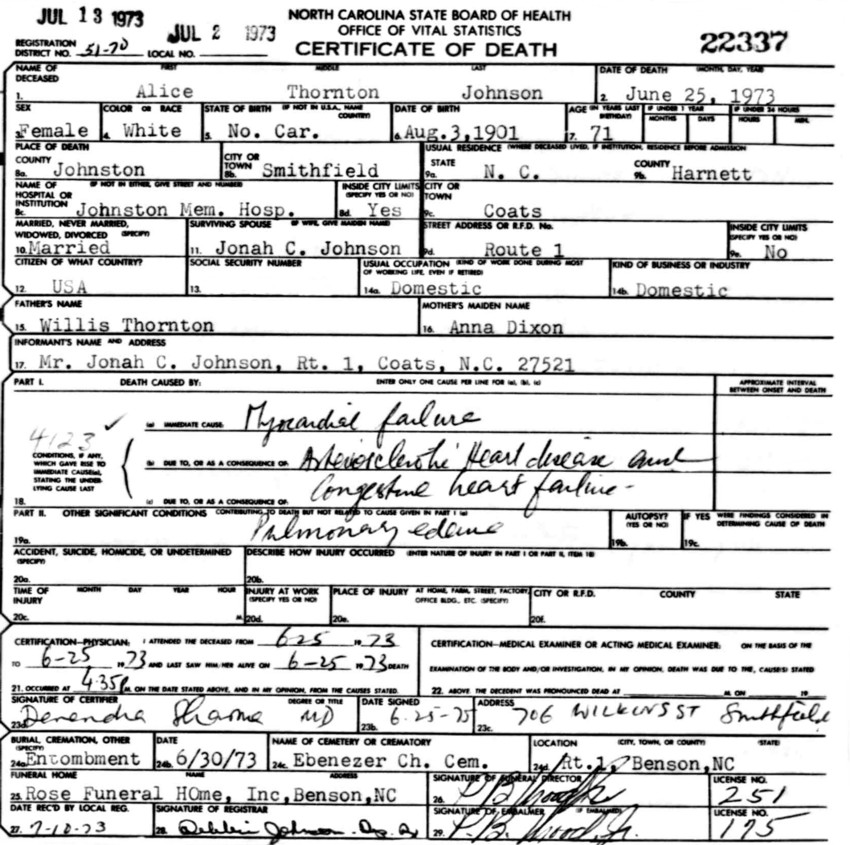 JUL 13 1973
JUL 2 1973
NORTH CAROLINA STATE BOARD OF HEALTH
OFFICE OF VITAL STATISTICS
REGISTRATION DISTRICT NO. 51-70 LOCAL NO.
CERTIFICATE OF DEATH
22337
NAME OF DECEASED FIRST MIDDLE LAST DATE OF DEATH (MONTH, DAY, YEAR)
1. Alice Thornton Johnson 2. June 25, 1973
SEX COLOR OR RACE STATE OF BIRTH (IF NOT IN U.S.A., NAME COUNTRY) DATE OF BIRTH AGE (IN YEARS LAST BIRTHDAY) IF UNDER 1 YEAR IF UNDER 24 HOURS
MONTHS DAYS HOURS MIN.
3. Female 4. White 5. No. Car. 6. Aug.3,1901 7. 71
PLACE OF DEATH USUAL RESIDENCE (WHERE DECEASED LIVED, IF INSTITUTION, RESIDENCE BEFORE ADMISSION
COUNTY CITY OR TOWN STATE COUNTY
8a. Johnston 8b. Smithfield 9a. N. C. 9b. Harnett
NAME OF HOSPITAL OR INSTITUTION (IF NOT IN EITHER, GIVE STREET AND NUMBER) INSIDE CITY LIMITS (SPECIFY YES OR NO) CITY OR TOWN
8c. Johnston Mem. Hosp. 8d. Yes 9c. Coats
MARRIED, NEVER MARRIED, WIDOWED, DIVORCED (SPECIFY) SURVIVING SPOUSE (IF WIFE, GIVE MAIDEN NAME) STREET ADDRESS OR R.F.D. No. INSIDE CITY LIMITS (SPECIFY YES OR NO)
10. Married 11. Jonah C. Johnson 9d. Route 1 9e. No
CITIZEN OF WHAT COUNTRY? SOCIAL SECURITY NUMBER USUAL OCCUPATION (KIND OF WORK DONE DURING MOST OF WORKING LIFE, EVEN IF RETIRED) KIND OF BUSINESS OR INDUSTRY
12. USA 13. 14a. Domestic 14b. Domestic
FATHER'S NAME MOTHER'S MAIDEN NAME
15. Willis Thornton 16. Anna Dixon
INFORMANT'S NAME AND ADDRESS
17. Mr. Jonah C. Johnson, Rt. 1, Coats, N.C. 27521
PART I. DEATH CAUSED BY: ENTER ONLY ONE CAUSE PER LINE FOR (a), (b), (c) APPROXIMATE INTERVAL BETWEEN ONSET AND DEATH
4123 (a) IMMEDIATE CAUSE Myocardial failure
CONDITIONS, IF ANY, WHICH GAVE RISE TO IMMEDIATE CAUSE(a), STATING THE UNDERLYING CAUSE LAST
(b) DUE TO, OR AS A CONSEQUENCE OF: Arteriosclerotic Heart disease and
18. (c) DUE TO, OR AS A CONSEQUENCE OF: Congestive heart failure-
PART II. OTHER SIGNIFICANT CONDITIONS CONTRIBUTING TO DEATH BUT NOT RELATED TO CAUSE GIVEN IN PART I (a) AUTOPSY? (YES OR NO) IF YES WERE FINDINGS CONSIDERED IN DETERMINING CAUSE OF DEATH
19a. Pulmonary edema 19b. 19c.
ACCIDENT, SUICIDE, HOMICIDE, OR UNDETERMINED (SPECIFY) DESCRIBE HOW INJURY OCCURRED (ENTER NATURE OF INJURY IN PART I OR PART II, ITEM 18)
20a. 20b.
TIME OF INJURY MONTH DAY YEAR HOUR INJURY AT WORK (SPECIFY YES OR NO) PLACE OF INJURY AT HOME, FARM, STREET, FACTORY, OFFICE BLDG., ETC. (SPECIFY) CITY OR R.F.D. COUNTY STATE
20c. M. 20d. 20e. 20f.
CERTIFICATION—PHYSICIAN: I ATTENDED THE DECEASED FROM 6-25 1973 CERTIFICATION—MEDICAL EXAMINER OR ACTING MEDICAL EXAMINER: ON THE BASIS OF THE
TO 6-25 1973 AND LAST SAW HIM/HER ALIVE ON 6-25 1973 DEATH EXAMINATION OF THE BODY AND/OR INVESTIGATION, IN MY OPINION, DEATH WAS DUE TO THE, CAUSE(S) STATED
21. OCCURRED AT 4:35P M. ON THE DATE STATED ABOVE, AND IN MY OPINION, FROM THE CAUSES STATED. 22. ABOVE. THE DECEDENT WAS PRONOUNCED DEAD AT M. ON 19
SIGNATURE OF CERTIFIER DEGREE OR TITLE DATE SIGNED ADDRESS
23a. Devendra Sharma MD 23b. 6-25-75 23c. 706 WILKINS ST Smithfield
BURIAL, CREMATION, OTHER (SPECIFY) DATE NAME OF CEMETERY OR CREMATORY LOCATION (CITY, TOWN, OR COUNTY) (STATE)
24a. Entombment 24b. 6/30/73 24c. Ebenezer Ch. Cem. 24d. Rt.1, Benson,NC
FUNERAL HOME NAME ADDRESS SIGNATURE OF FUNERAL DIRECTOR LICENSE NO.
25. Rose Funeral HOme, Inc,Benson,NC 26. 251
DATE REC'D BY LOCAL REG. SIGNATURE OF REGISTRAR SIGNATURE OF EMBALMER (IF EMBALMED) LICENSE NO.
27. 7-10-73 28. Debbie Johnson 29. 175